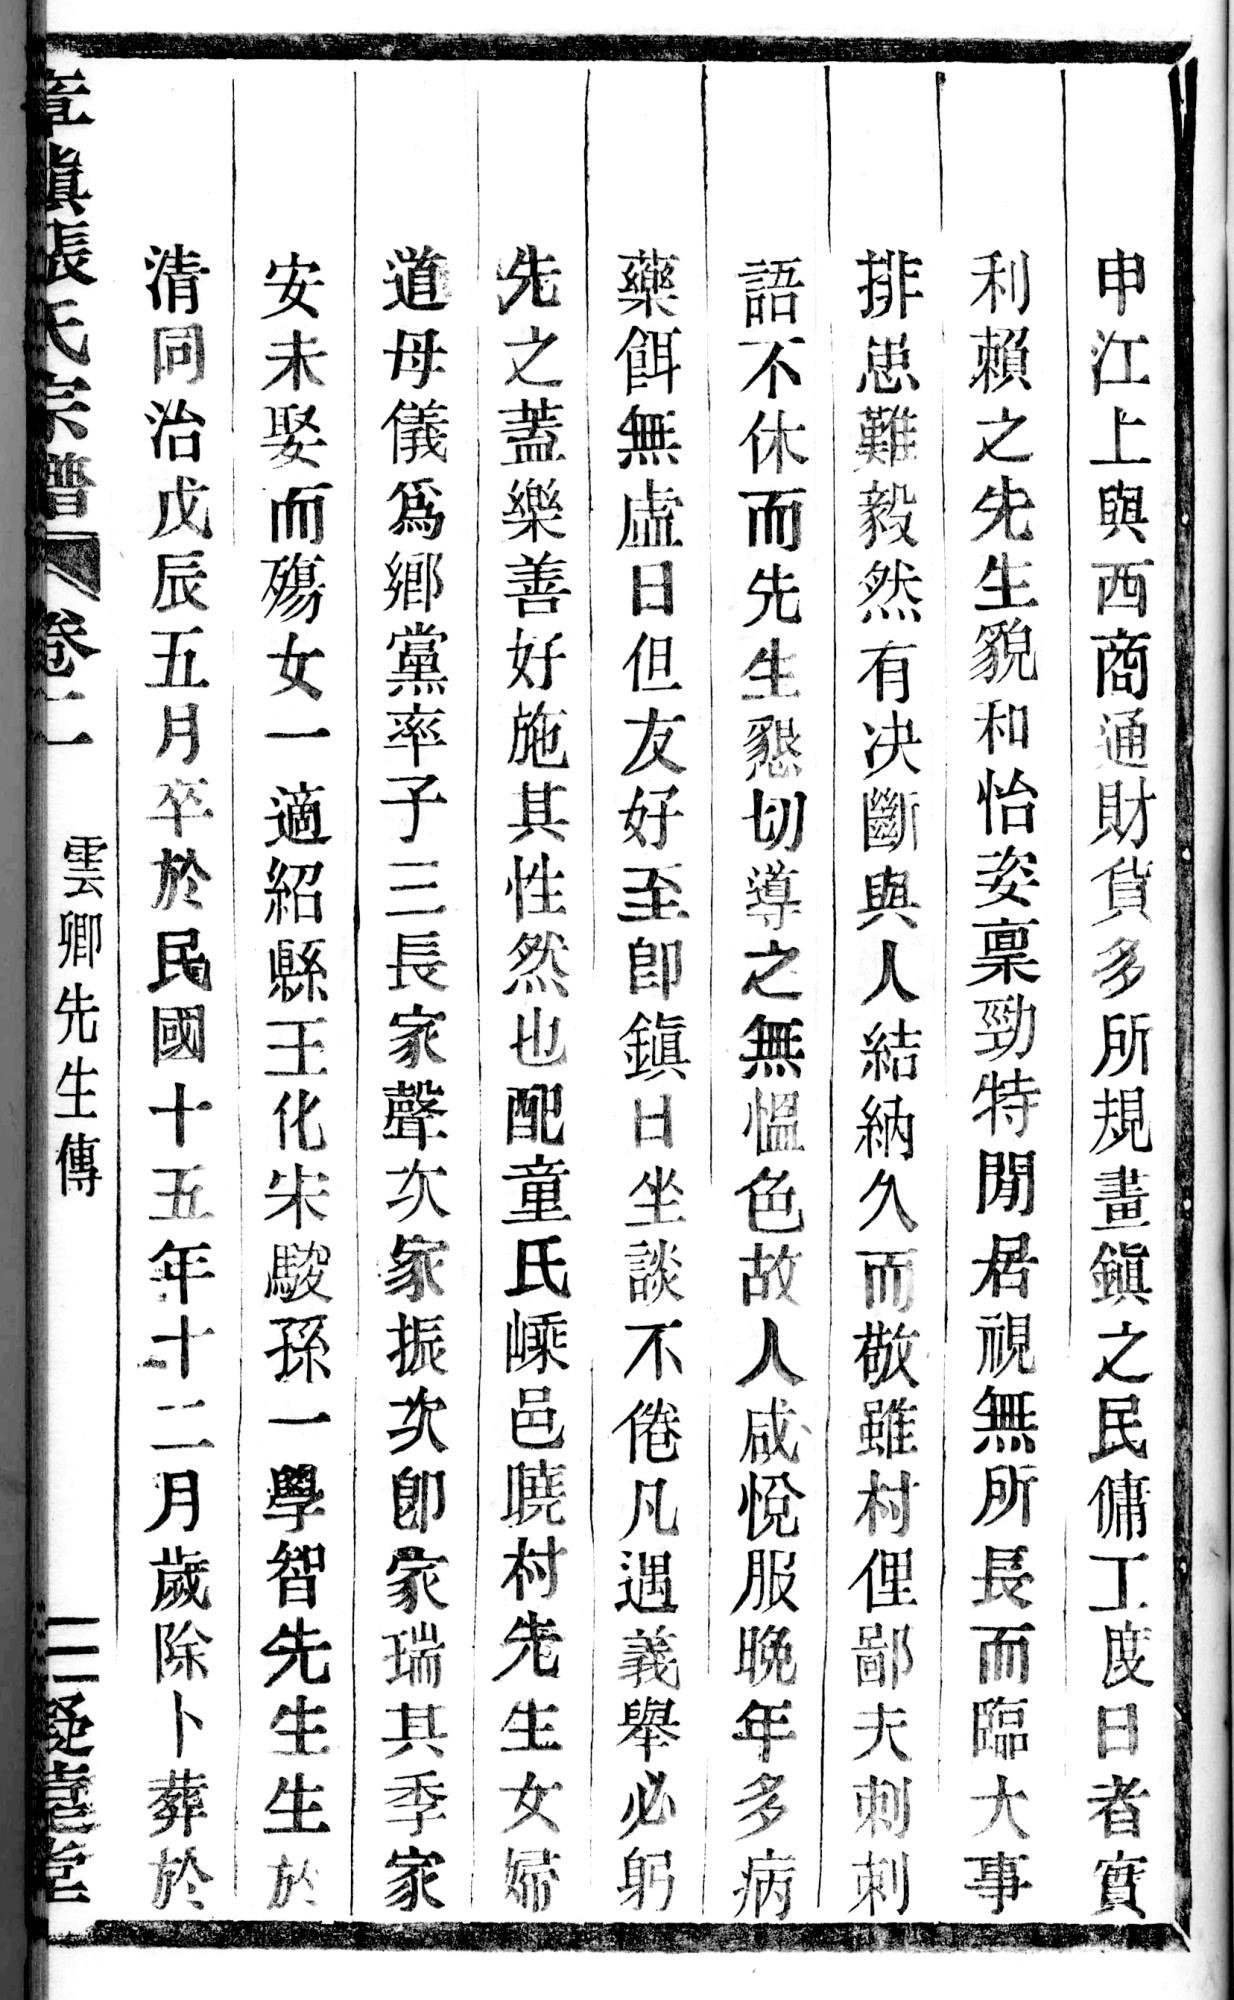 申江上與西商通財貨多所規畫鎭之民傭工度日者實
利賴之先生貌和怡姿稟勁特閒居視無所長而臨大事
排患難毅然有決斷與人結納久而敬雖村俚鄙夫刺刺
語不休而先生懇切導之無慍色故人咸悅服晚年多病
藥餌無虛日但友好至卽鎭日坐談不倦凡遇義舉必躬
先之蓋樂善好施其性然也配童氏嵊邑曉村先生女婦
道母儀爲鄉黨率子三長家聲次家振次卽家瑞其季家
安未娶而殤女一適紹縣王化宋駿孫一學智先生生於
清同治戊辰五月卒於民國十五年十二月歲除卜葬於
章鎭張氏宗譜 卷二 雲卿先生傳 三 凝遠堂